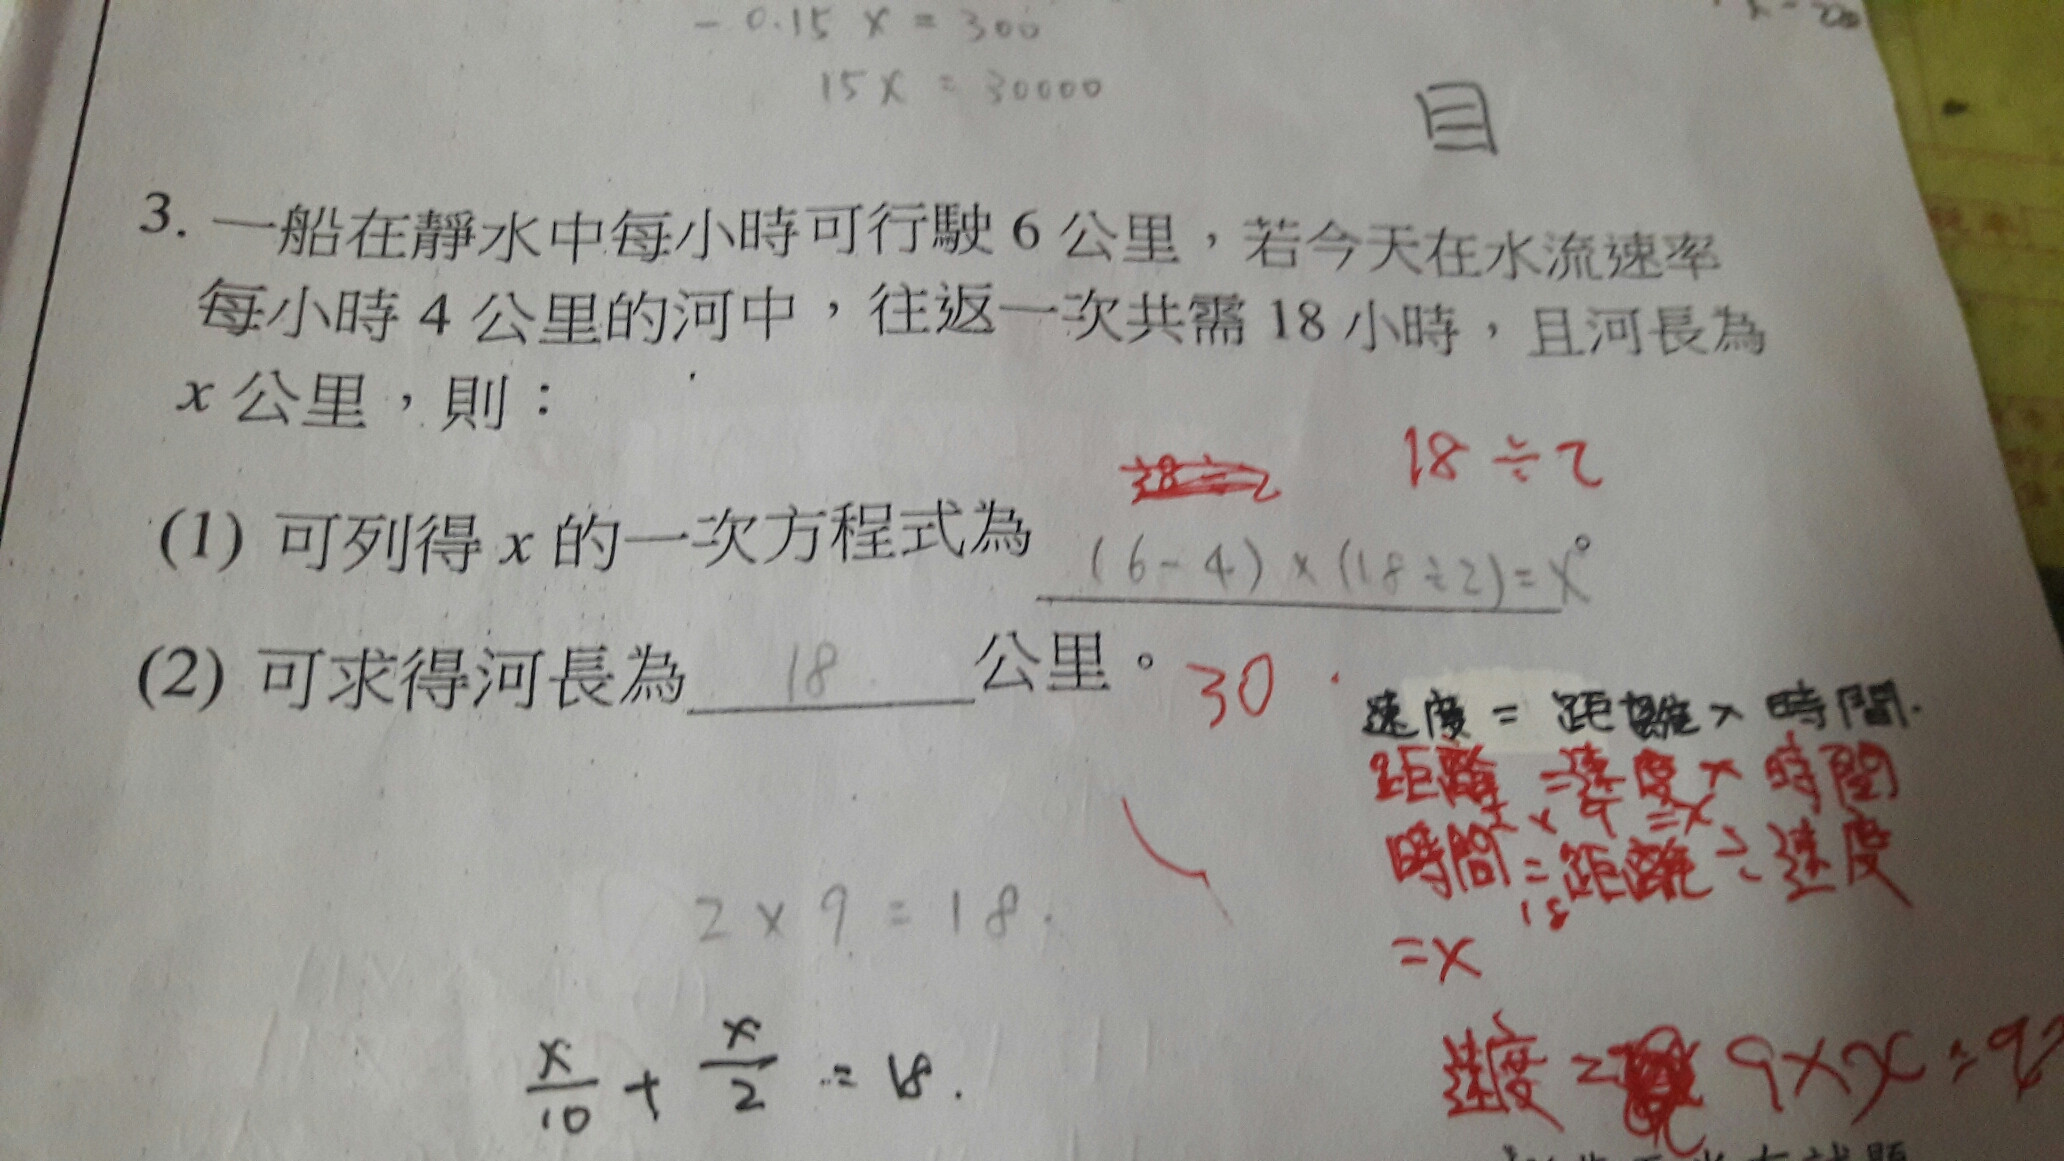 - 0.15 x = 300
15x = 30000
3. 一船在靜水中每小時可行駛 6 公里，若今天在水流速率
每小時 4 公里的河中，往返一次共需 18 小時，且河長為
x 公里，則：
18÷2
(1) 可列得 x 的一次方程式為 (6-4)×(18÷2)=x
(2) 可求得河長為 18 公里。 30
速度 = 距離 × 時間.
距離 = 速度 × 時間
2 × 9 = x
時間 = 距離 ÷ 速度
18
= x
2 × 9 = 18.
x/10 + x/2 = 18.
速度 = 9 × x =